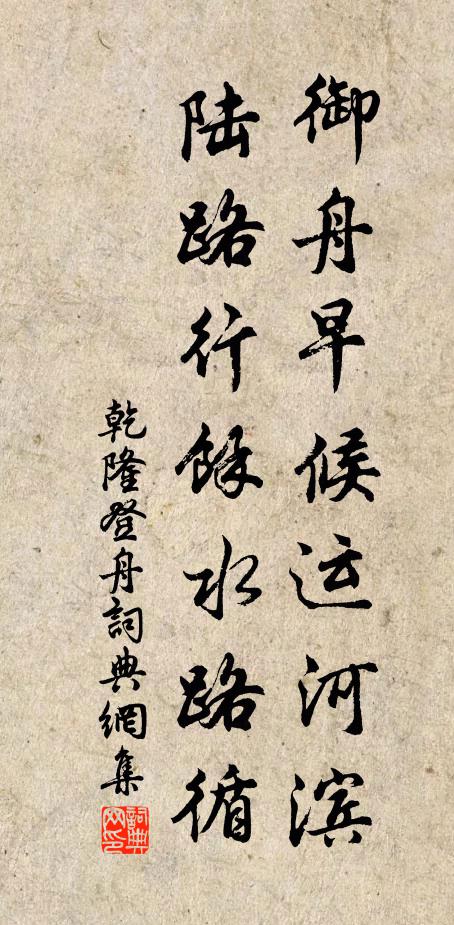 御舟早候运河滨
陆路行餘水路循
乾隆登舟詞典網集
詞典網印